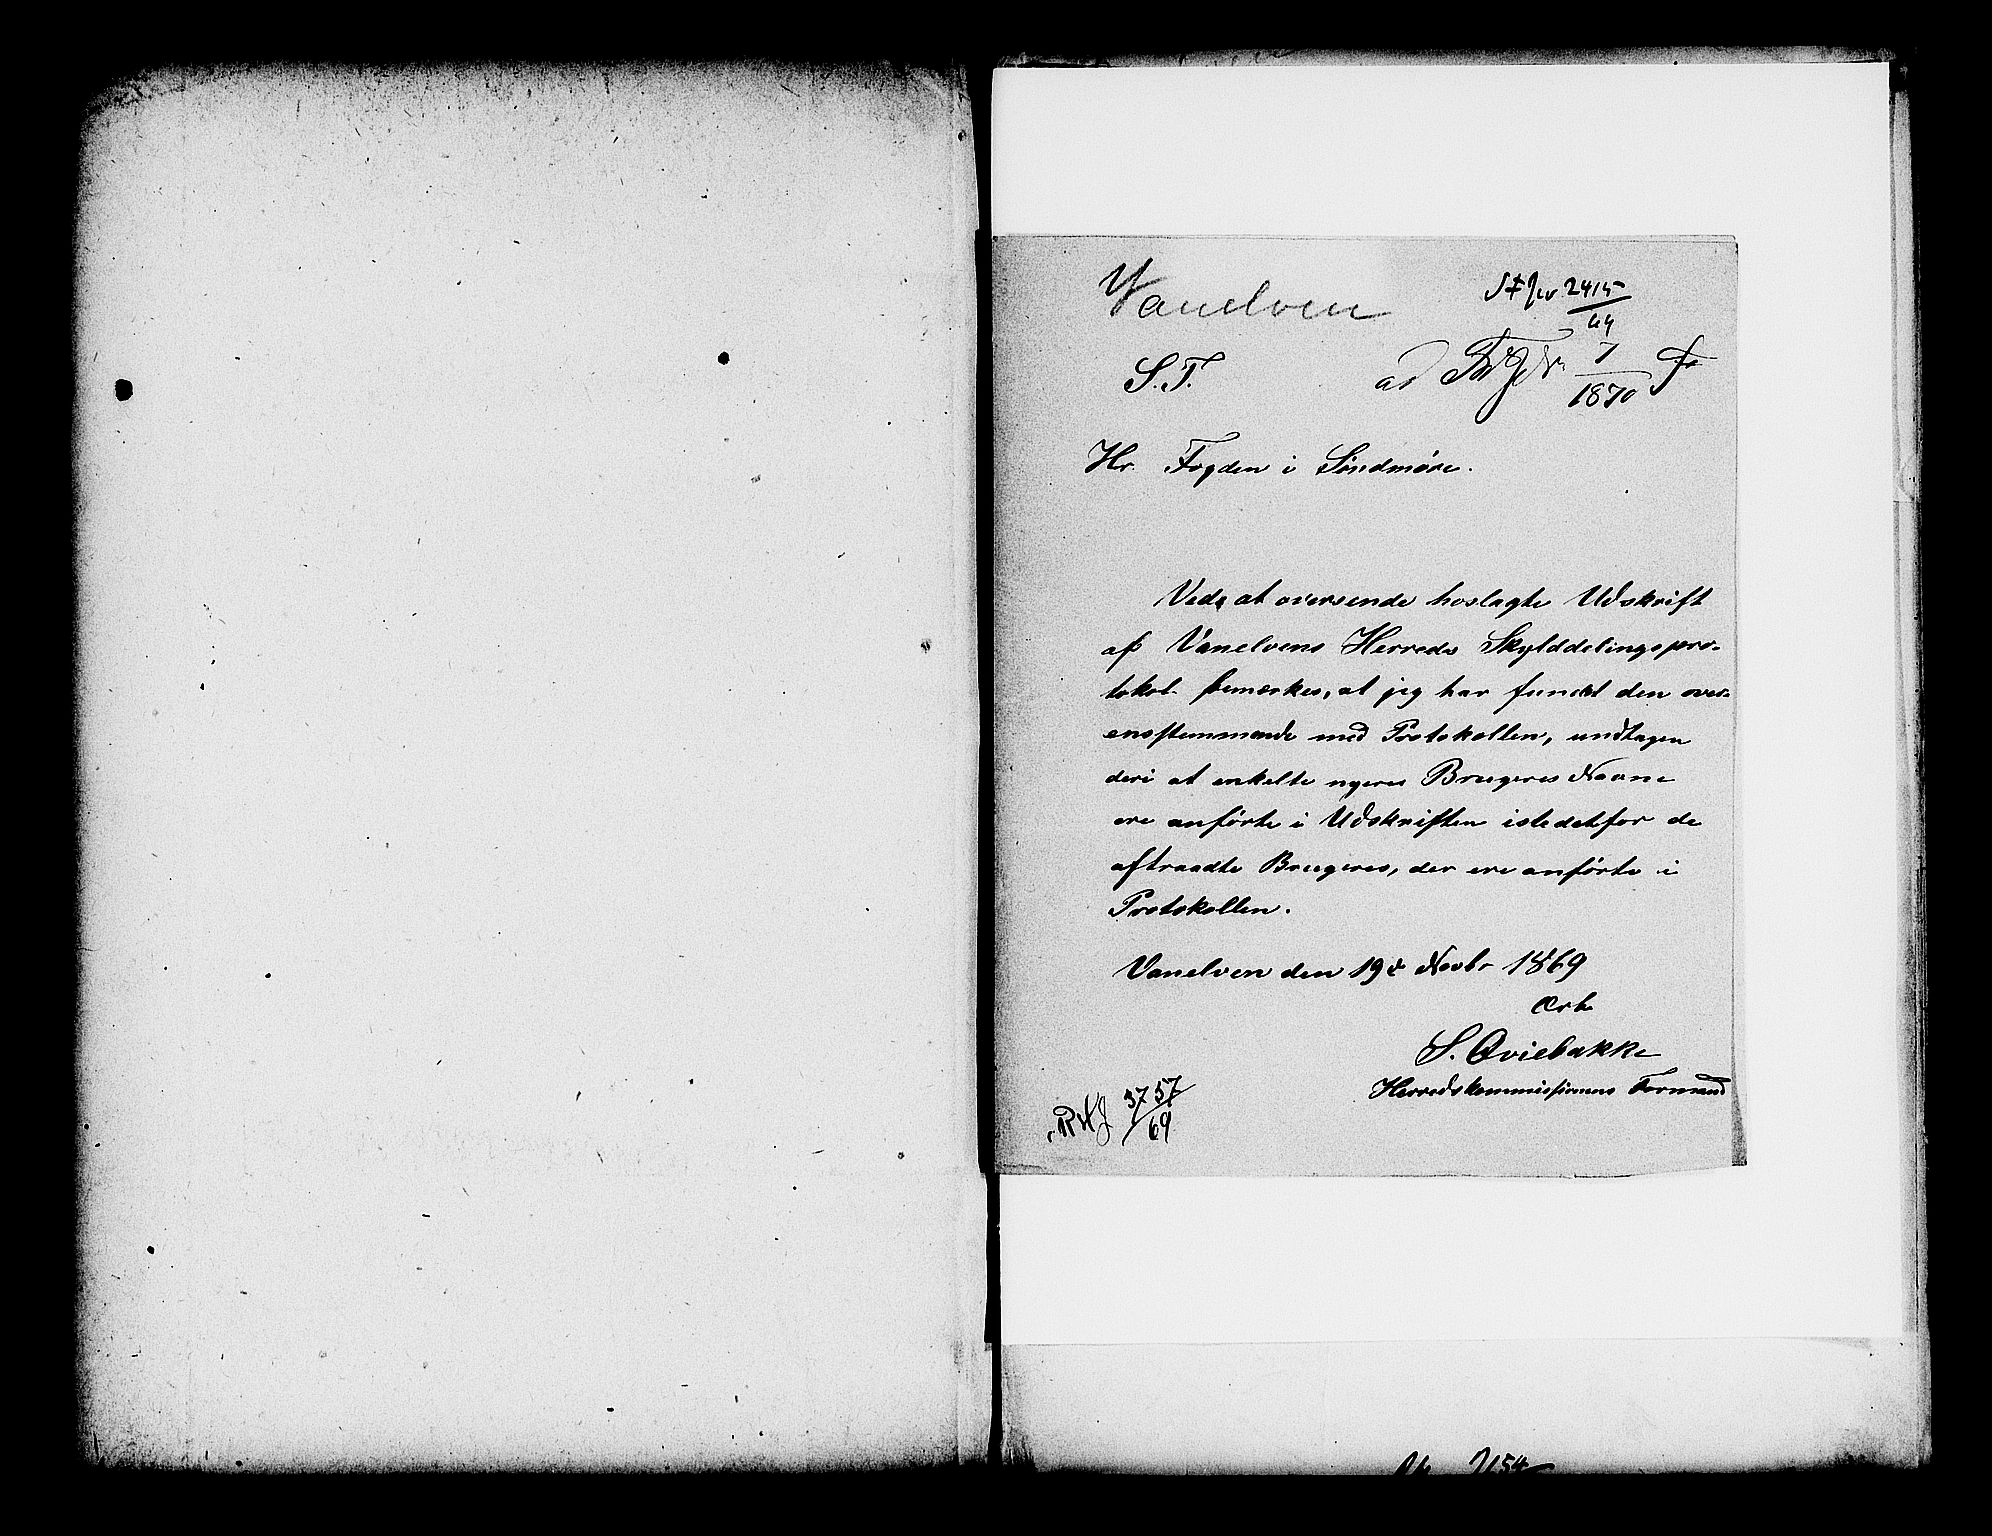 Vanelven
2415
69
S.T.
ad 7
1870
Hr. Fogden i Söndmöre.
Ved at oversende hoslagte Udskrift
af Vanelvens Herreds Skylddelingspro-
tokol bemærkes, at jeg har fundet den over-
ensstemmende med Protokollen, undtagen
deri at enkelte nyere Brugeres Navne
ere anförte i Udskriften istedetfor de
aftraadte Brugeres, der ere anförte i
Protokollen.
Vanelven den 19de Novbr 1869
Ærb
S. Qviebakke
Herredskommissionens Formand
3757
69